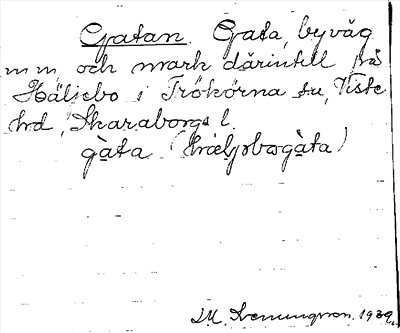 Gatan. Gata, byväg
m m, och mark därintill på
Häljebo i Trökörna sn, Viste
hd, Skaraborgs l.
gàta (hæljobogàta)
M. Henningson. 1939.